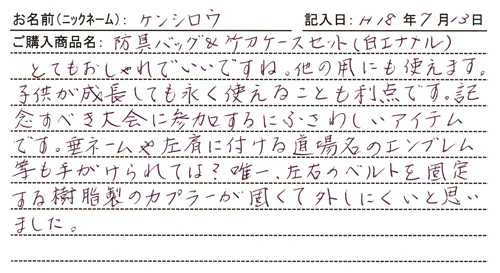 お名前(ニックネーム): ケンシロウ 記入日: H18 年 7 月 13 日
ご購入商品名: 防具バッグ&竹刀ケースセット(白エナメル)
とてもおしゃれでいいですね。他の用にも使えます。
子供が成長しても永く使えることも利点です。記
念すべき大会に参加するにふさわしいアイテム
です。垂ネームや左肩に付ける道場名のエンブレム
等も手がけられては?唯一、左右のベルトを固定
する樹脂製のカプラーが固くて外しにくいと思い
ました。